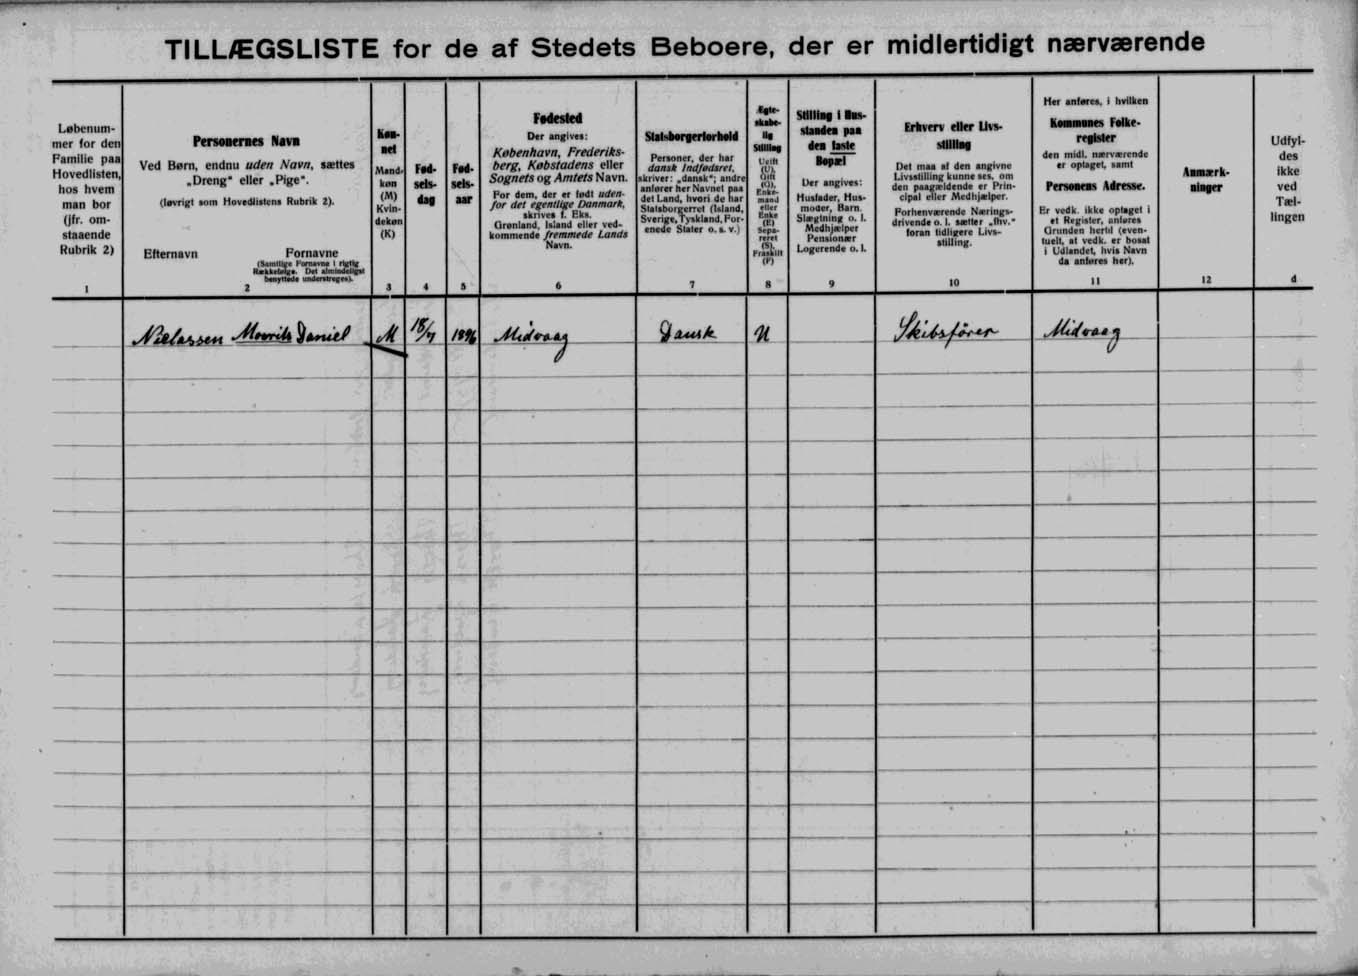 TILLÆGSLISTE for de af Stedets Beboere, der er midlertidigt nærværende
Løbenum-
mer for den
Familie paa
Hovedlisten,
hos hvem
man bor
(jfr. om-
staaende
Rubrik 2)
1
Personernes Navn
Ved Børn, endnu uden Navn, sættes
„Dreng“ eller „Pige“.
(Iøvrigt som Hovedlistens Rubrik 2).
Efternavn
Fornavne
(Samtlige Fornavne i rigtig
Rækkefølge. Det almindeligst
benyttede understreges).
2
Køn-
net
Mand-
køn
(M)
Kvin-
dekøn
(K)
3
Fød-
sels-
dag
4
Fød-
sels-
aar
5
Fødested
Der angives:
København, Frederiks-
berg, Købstadens eller
Sognets og Amtets Navn.
For dem, der er født uden-
for det egentlige Danmark,
skrives f. Eks.
Grønland, Island eller ved-
kommende fremmede Lands
Navn.
6
Statsborgerforhold
Personer, der har
dansk Indfødsret,
skriver: „dansk“; andre
anfører her Navnet paa
det Land, hvori de har
Statsborgerret (Island,
Sverige, Tyskland, For-
enede Stater o. s. v.)
7
Ægte-
skabe-
lig
Stilling
Ugift
(U),
Gift
(G),
Enke-
mand
eller
Enke
(E)
Sepa-
reret
(S),
Fraskilt
(F)
8
Stilling i Hus-
standen paa
den faste
Bopæl
Der angives:
Husfader, Hus-
moder, Barn.
Slægtning o. l.
Medhjælper
Pensionær
Logerende o. l.
9
Erhverv eller Livs-
stilling
Det maa af den angivne
Livsstilling kunne ses, om
den paagældende er Prin-
cipal eller Medhjælper.
Forhenværende Nærings-
drivende o. l. sætter „fhv.“
foran tidligere Livs-
stilling.
10
Her anføres, i hvilken
Kommunes Folke-
register
den midl. nærværende
er optaget, samt
Personens Adresse.
Er vedk. ikke optaget i
et Register, anføres
Grunden hertil (even-
tuelt, at vedk. er bosat
i Udlandet, hvis Navn
da anføres her).
11
Anmærk-
ninger
12
Udfyl-
des
ikke
ved
Tæl-
lingen
d
Nielassen Mourits Daniel M 18/7 1896 Midvaag Dansk U Skibsfører Midvaag